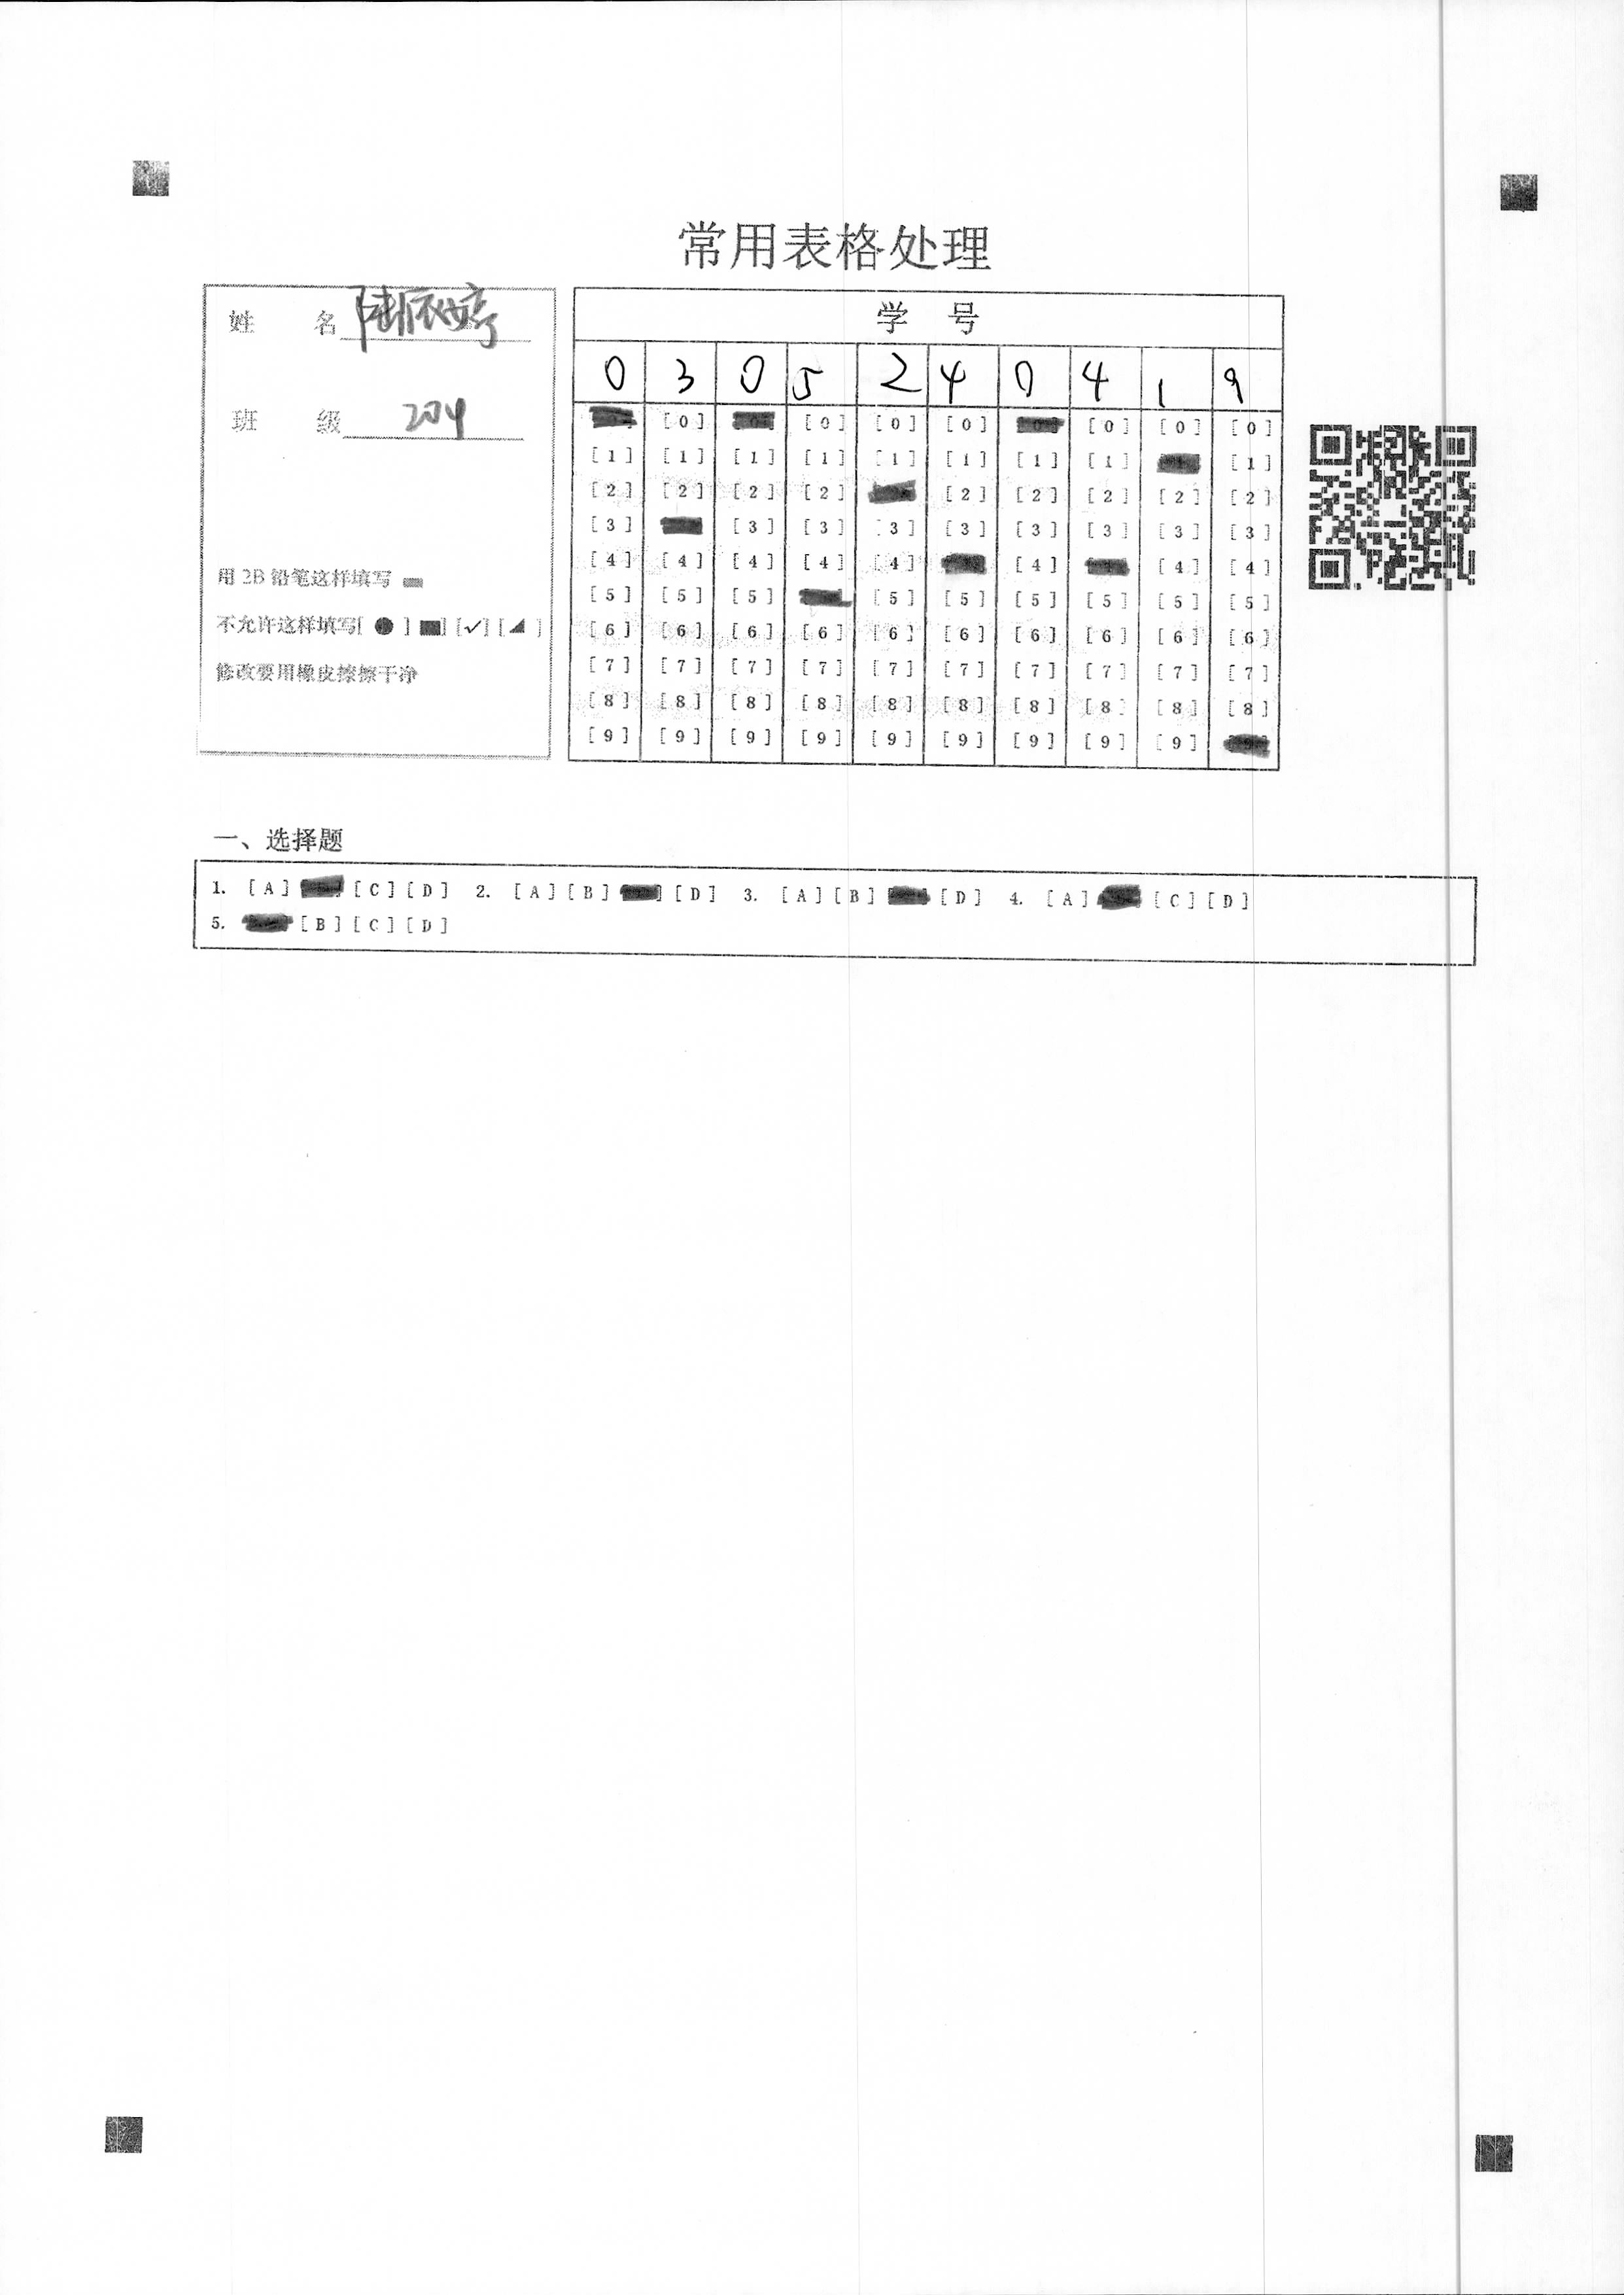 常用表格处理
姓 名
班 级 204
用 2B 铅笔这样填写
不允许这样填写[ ● ] [■] [✓] [◢ ]
修改要用橡皮擦擦干净
学 号
0 3 0 5 2 4 0 4 1 9
[0] [0] [0] [0] [0] [0] [0]
[1] [1] [1] [1] [1] [1] [1] [1] [1]
[2] [2] [2] [2] [2] [2] [2] [2] [2]
[3] [3] [3] [3] [3] [3] [3] [3] [3]
[4] [4] [4] [4] [4] [4] [4] [4]
[5] [5] [5] [5] [5] [5] [5] [5] [5]
[6] [6] [6] [6] [6] [6] [6] [6] [6] [6]
[7] [7] [7] [7] [7] [7] [7] [7] [7] [7]
[8] [8] [8] [8] [8] [8] [8] [8] [8] [8]
[9] [9] [9] [9] [9] [9] [9] [9] [9]
一、选择题
1. [A] [C] [D] 2. [A] [B] [D] 3. [A] [B] [D] 4. [A] [C] [D]
5. [B] [C] [D]